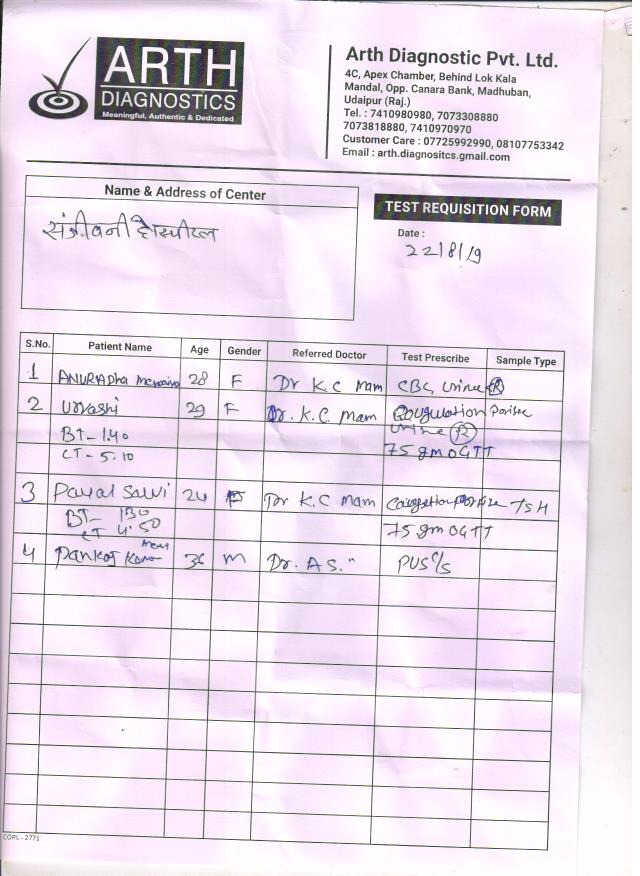 ARTH
DIAGNOSTICS
Meaningful, Authentic & Dedicated
Arth Diagnostic Pvt. Ltd.
4C, Apex Chamber, Behind Lok Kala
Mandal, Opp. Canara Bank, Madhuban,
Udaipur (Raj.)
Tel. : 7410980980, 7073308880
7073818880, 7410970970
Customer Care : 07725992990, 08107753342
Email : arth.diagnositcs.gmail.com
Name & Address of Center
संजीवनी हॉस्पीटल
TEST REQUISITION FORM
Date :
22/8/19
S.No. Patient Name Age Gender Referred Doctor Test Prescribe Sample Type
1 ANURADha 28 F Dr K.C Mam CBC, Urine R
2 Urvashi 29 F Dr. K.C. Mam Cougulation
Urine R
BT- 1.40 75 gm OGTT
CT- 5.10
3 Payal Salvi 24 F Dr K.C Mam TSH
BT- 130 75 gm OGTT
CT 4.50
4 Pankaj 36 M Dr. A S. " PUS C/S
COPL - 2771